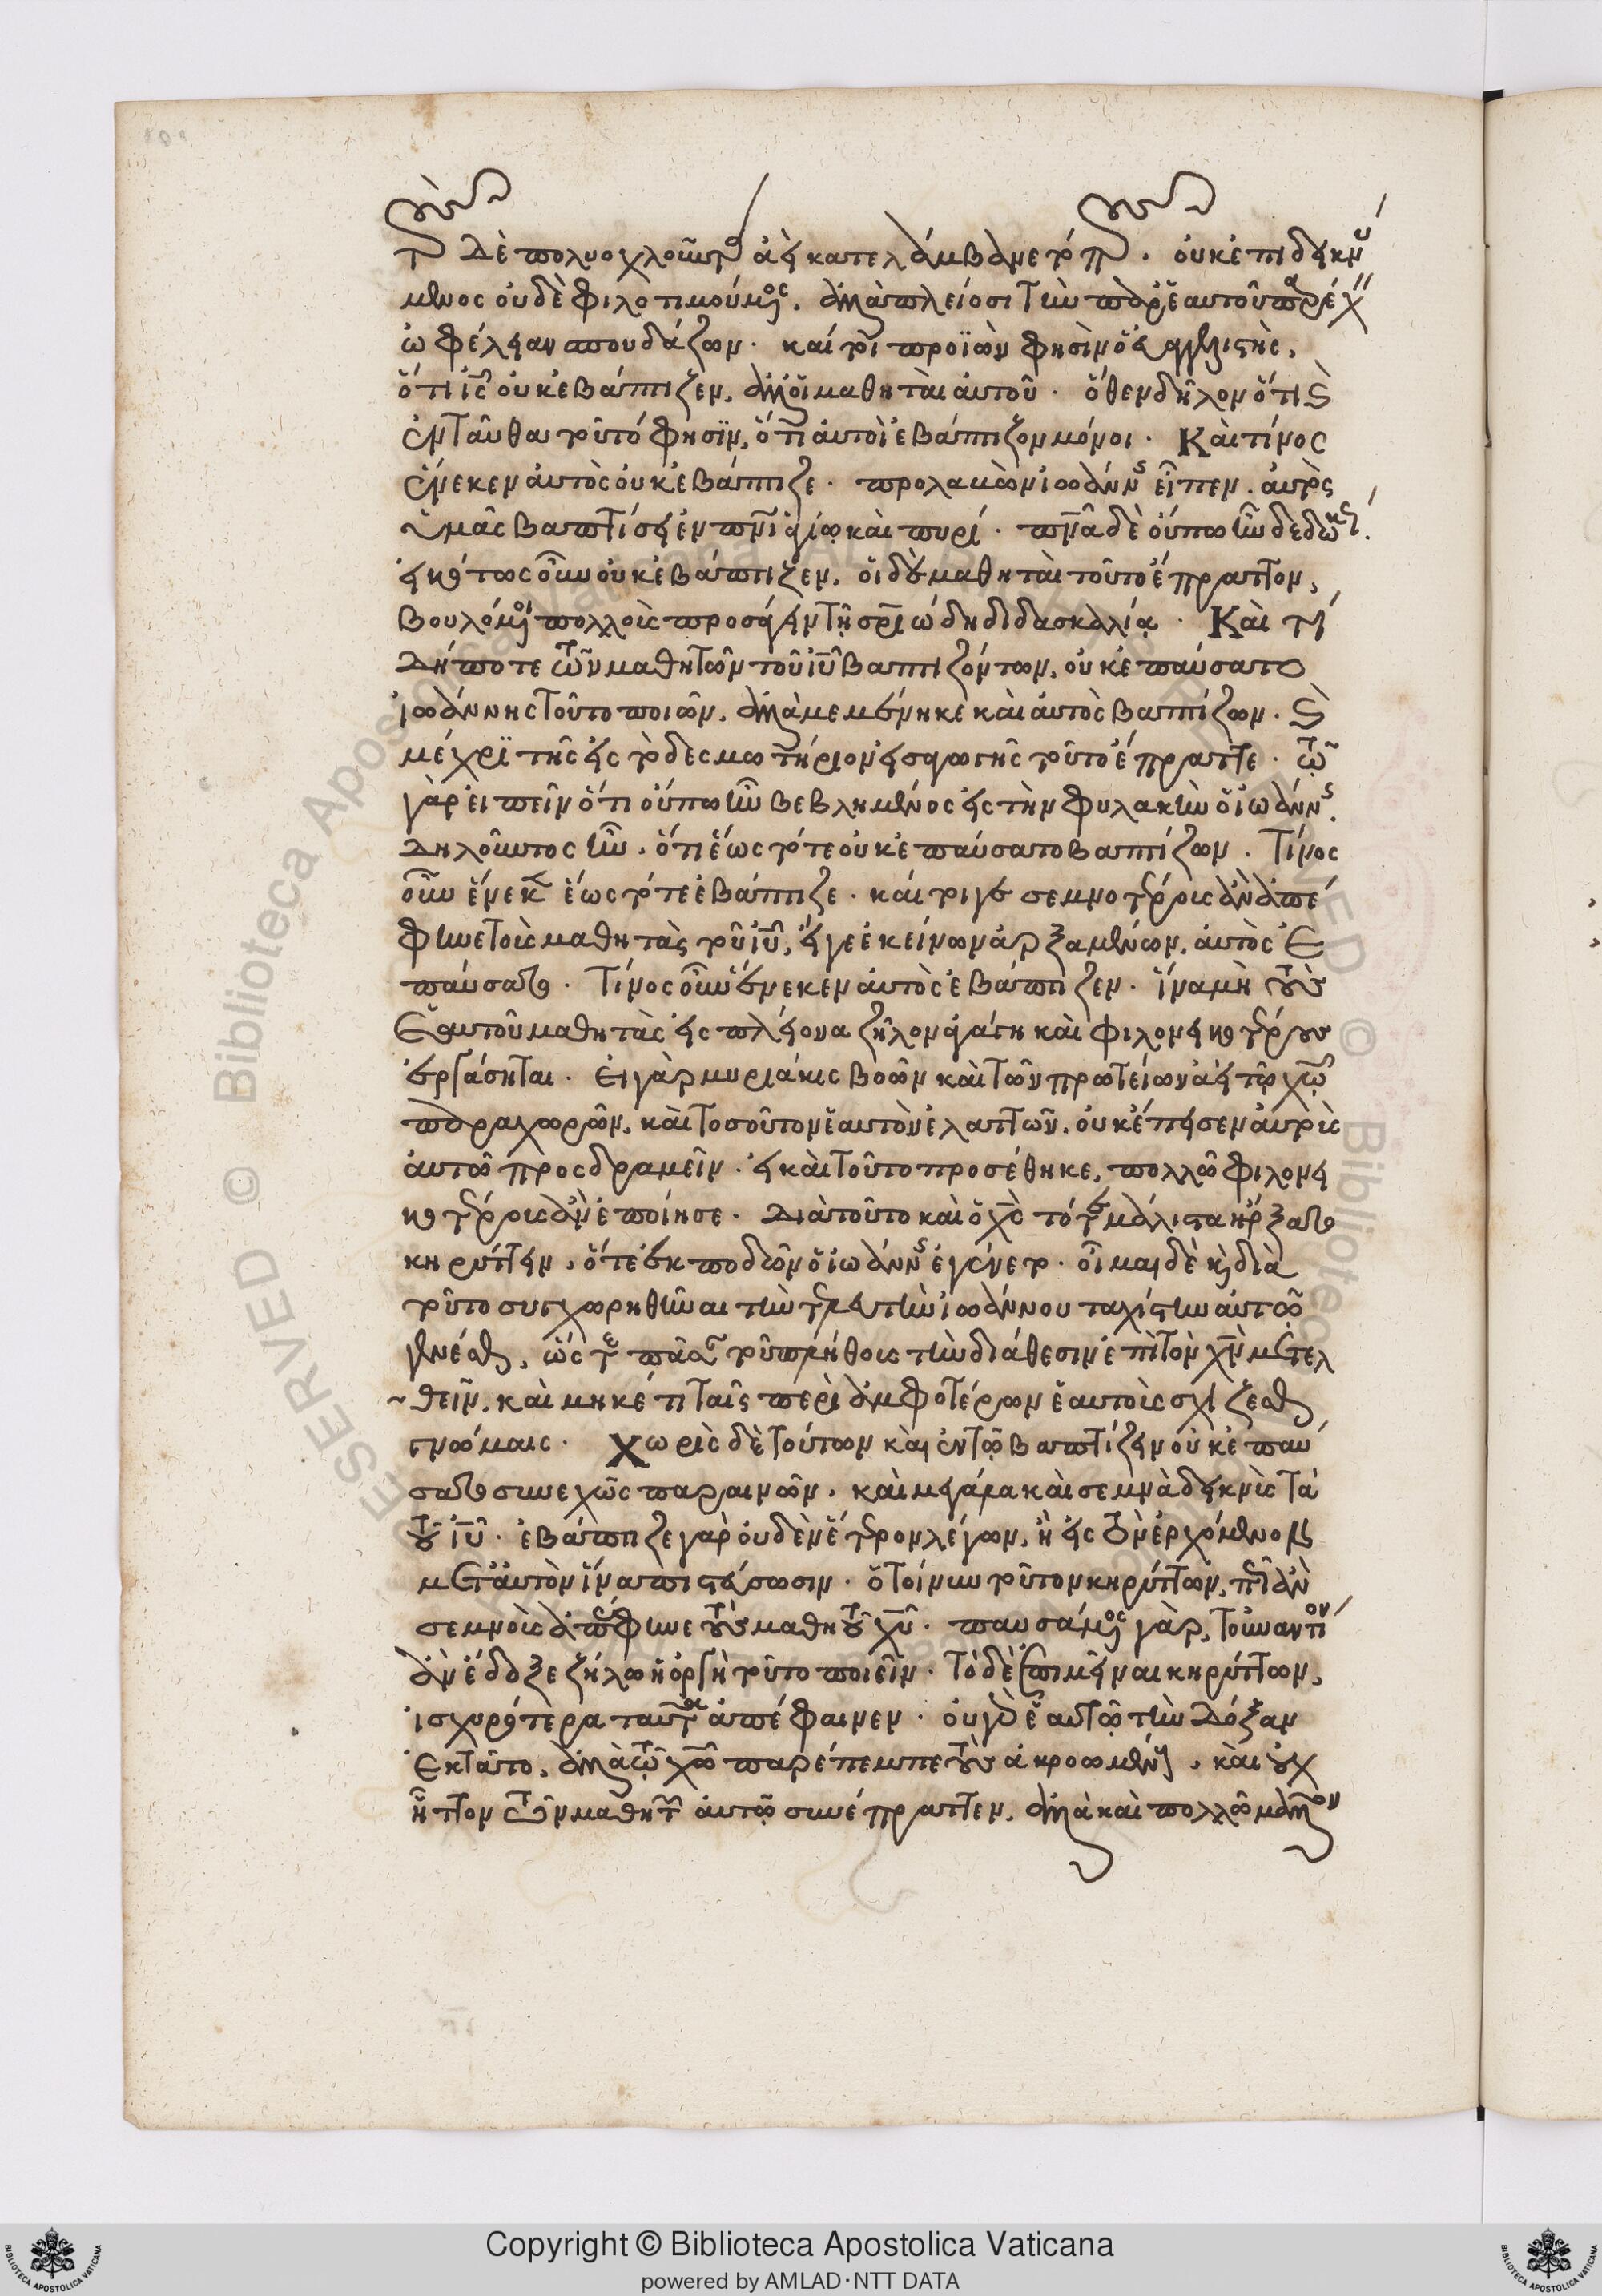 τοὺς δὲ πολυοχλουμένους ἀεὶ κατελάμβανε τόπους. οὐκ ἐπιδεικνύ
μενος οὐδὲ φιλοτιμούμενος, ἀλλὰ πλείοσι τὴν παρ' ἑαυτοῦ παρέχειν
ὠφέλειαν σπουδάζων. καίτοι προϊὼν φησὶν ὁ εὐαγγελιστὴς,
ὅτι ις οὐκ ἐβάπτιζεν, ἀλλ' οἱ μαθηταὶ αὐτοῦ. ὅθεν δῆλον ὅτι καὶ
ἐνταῦθα τοῦτό φησιν, ὅτι αὐτοὶ ἐβάπτιζον μόνοι. Καὶ τίνος
ἕνεκεν αὐτὸς οὐκ ἐβάπτιζε. προλαβὼν ἰωάννης εἶπεν. αὐτὸς
ὑμᾶς βαπτίσει ἐν πνι ἁγίῳ καὶ πυρί. πνα δὲ οὔπω ἦν δεδωκώς.
εἰκότως οὖν οὐκ ἐβάπτιζεν. οἱ δὲ μαθηταὶ τοῦτο ἔπραττον,
βουλόμενοι πολλοὺς προσάγειν τῇ σριώδη διδασκαλίᾳ. Καὶ τί
δήποτε τῶν μαθητῶν τοῦ ιυ βαπτιζόντων, οὐκ ἐπαύσατο
ἰωάννης τοῦτο ποιῶν, ἀλλὰ μεμένηκε καὶ αὐτὸς βαπτίζων. καὶ
μέχρι τῆς εἰς τὸ δεσμωτήριον εἰσαγωγῆς τοῦτο ἔπραττε. τὸ
γὰρ εἰπεῖν ὅτι οὔπω ἦν βεβλημένος εἰς τὴν φυλακὴν ὁ ἰωάννης.
δηλοῦντος ἦν, ὅτι ἕως τότε οὐκ ἐπαύσατο βαπτίζων. Τίνος
οὖν ἕνεκεν ἕως τότε ἐβάπτιζε. καίτοιγε σεμνοτέρους ἂν ἀπέ
φηνε τοὺς μαθητὰς τοῦ ιυ, εἴγε ἐκείνων ἀρξαμένων, αὐτὸς ἐ
παύσατο. Τίνος οὖν ἕνεκεν αὐτὸς ἐβάπτιζεν. ἵνα μὴ τοὺς
ἑαυτοῦ μαθητὰς εἰς πλείονα ζῆλον ἀγάγῃ καὶ φιλονεικοτέρους
ἐργάσηται. εἰ γὰρ μυριάκις βοῶν καὶ τῶν πρωτείων ἀεὶ τῷ χω
παραχωρῶν, καὶ τοσοῦτον ἑαυτὸν ἐλαττῶν, οὐκ ἔπεισεν αὐτοὺς
αὐτῷ προσδραμεῖν. εἰ καὶ τοῦτο προσέθηκε, πολλῷ φιλονει
κοτέρους ἂν ἐποίησε. Διὰ τοῦτο καὶ ὁ χς τότε μάλιστα ἤρξατο
κηρύττειν, ὅτε ἐκ ποδῶν ὁ ἰωάννης ἐγένετο. οἶμαι δὲ καὶ διὰ
τοῦτο συγχωρηθῆναι τὴν τελευτὴν ἰωάννου ταχίστην αὐτῷ
γενέσθαι, ὥστε πᾶσαν τοῦ πλήθους τὴν διάθεσιν ἐπὶ τὸν χν μετελ
θεῖν, καὶ μηκέτι ταῖς περὶ ἀμφοτέρων ἑαυτοὺς σχίζεσθαι
γνώμαις. Χωρὶς δὲ τούτων καὶ ἐν τῷ βαπτίζειν οὐκ ἐπαύ
σατο συνεχῶς παραινῶν, καὶ μεγάλα καὶ σεμνὰ δεικνὺς τὰ
τοῦ ιυ. ἐβάπτιζε γὰρ οὐδὲν ἕτερον λέγων, ἢ εἰς τὸν ἐρχόμενον
μετ' αὐτὸν ἵνα πιστεύσωσιν. ὁ τοίνυν τοῦτον κηρύττων, πῶς ἂν
σεμνοὺς ἀπέφηνε τοὺς μαθητὰς τοῦ χυ. παυσάμενος γὰρ, τοὐναντίον
ἂν ἔδοξε ζήλῳ ἢ ὀργῇ τοῦτο ποιεῖν. τὸ δὲ ἐπιμεῖναι κηρύττων,
ἰσχυρότερα ταῦτα ἀπέφαινεν. οὐ γὰρ ἑαυτῷ τὴν δόξαν
ἐκτᾶτο, ἀλλὰ τῷ χω παρέπεμπε τοὺς ἀκροωμένους, καὶ οὐχ
ἧττον τῶν μαθητῶν αὐτῷ συνέπραττεν, ἀλλὰ καὶ πολλῷ μᾶλλον
Copyright © Biblioteca Apostolica Vaticana
powered by AMLAD·NTT DATA